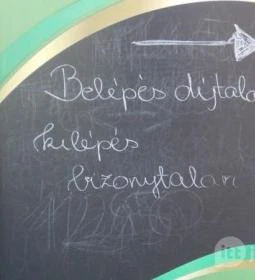 Belépés díjtala
kilépés
bizonytalan